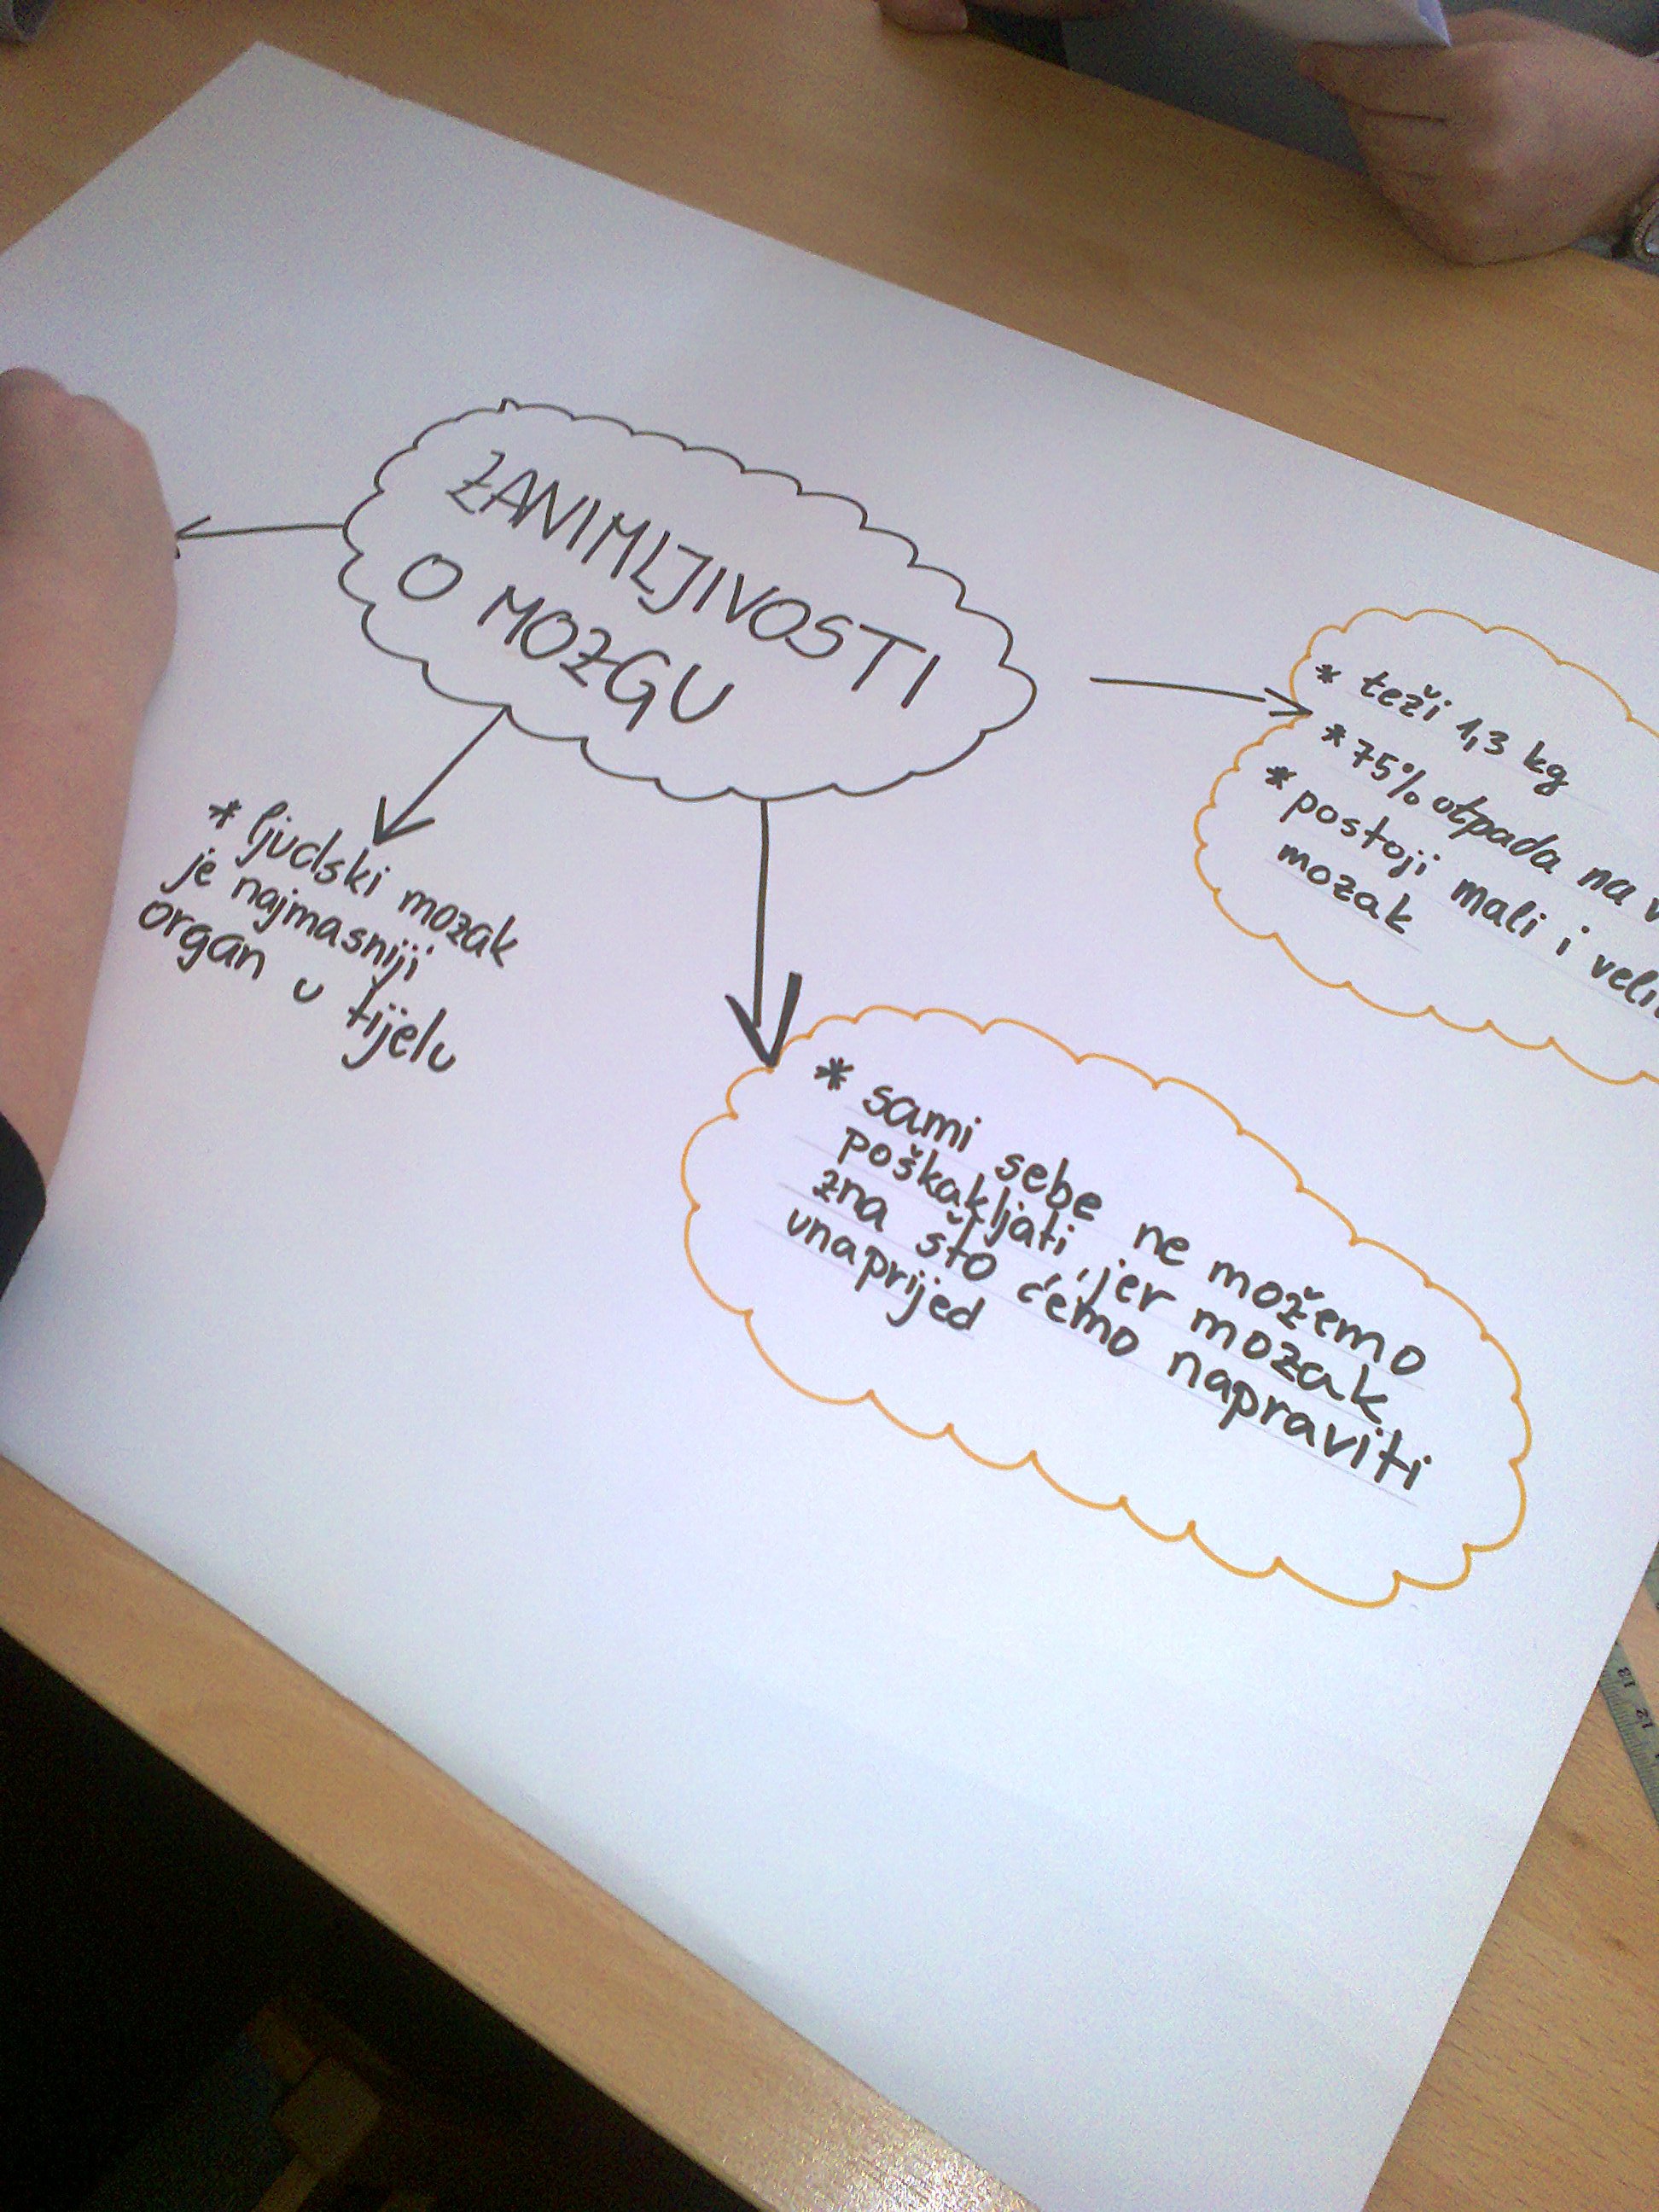 ZANIMLJIVOSTI
O MOZGU
* teži 1,3 kg
* 75% otpada na
* postoji mali i veli
mozak
* ljudski mozak
je najmasniji
organ u tijelu
* sami sebe ne možemo
poškakljati, jer mozak
zna što ćemo napraviti
unaprijed
13
12